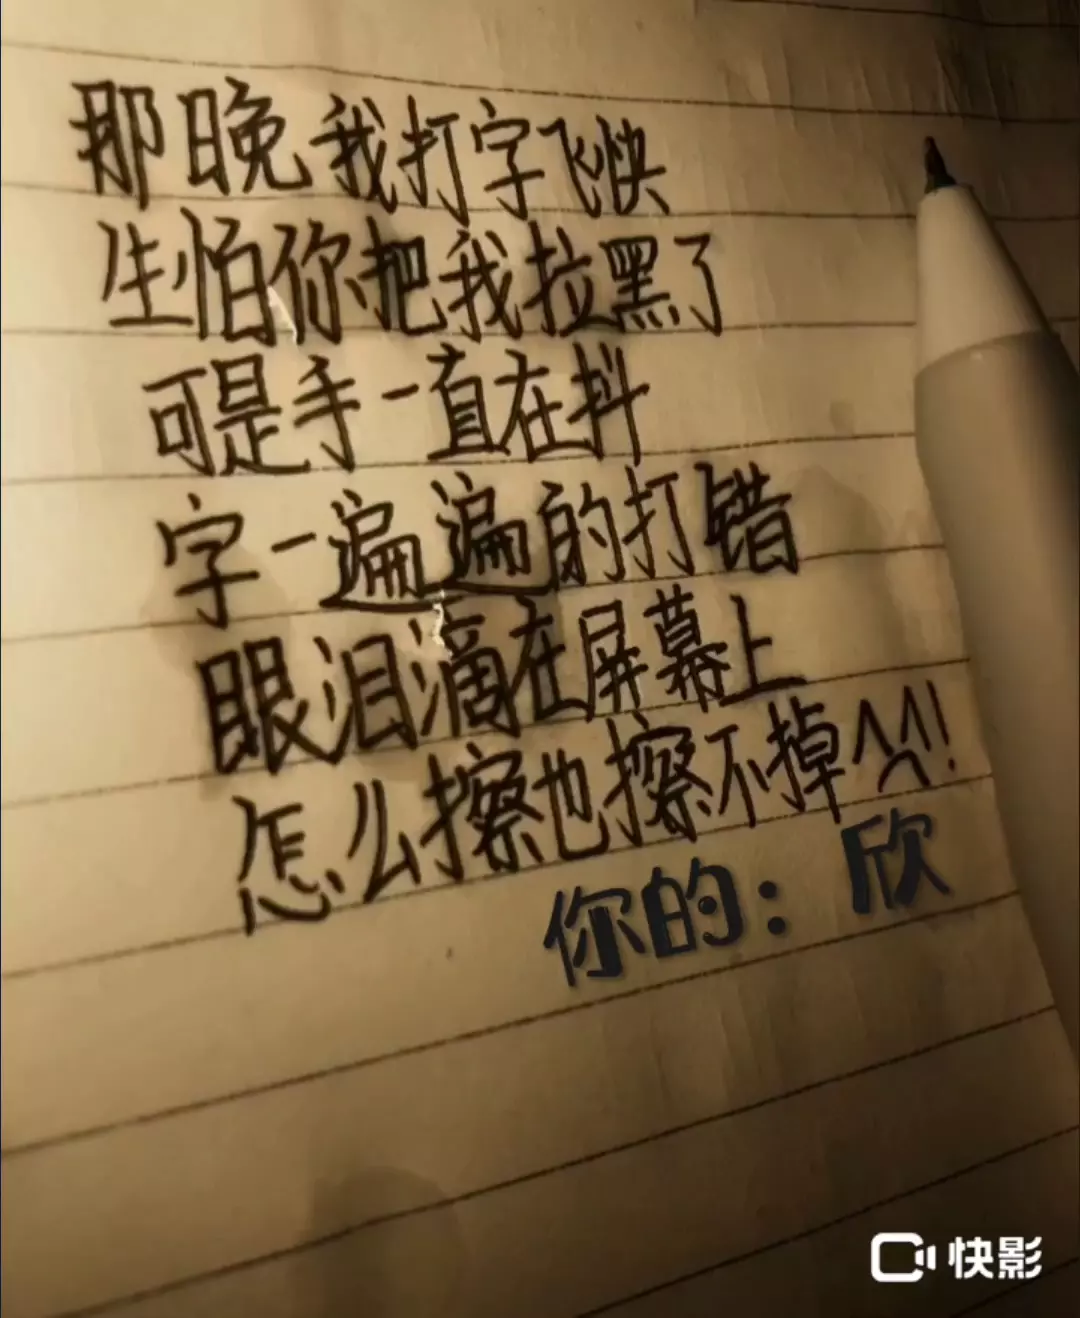 那晚我打字飞快
生怕你把我拉黑了
可是手一直在抖
字一遍遍的打错
眼泪滴在屏幕上
怎么擦也擦不掉^^!
你的：欣
快影